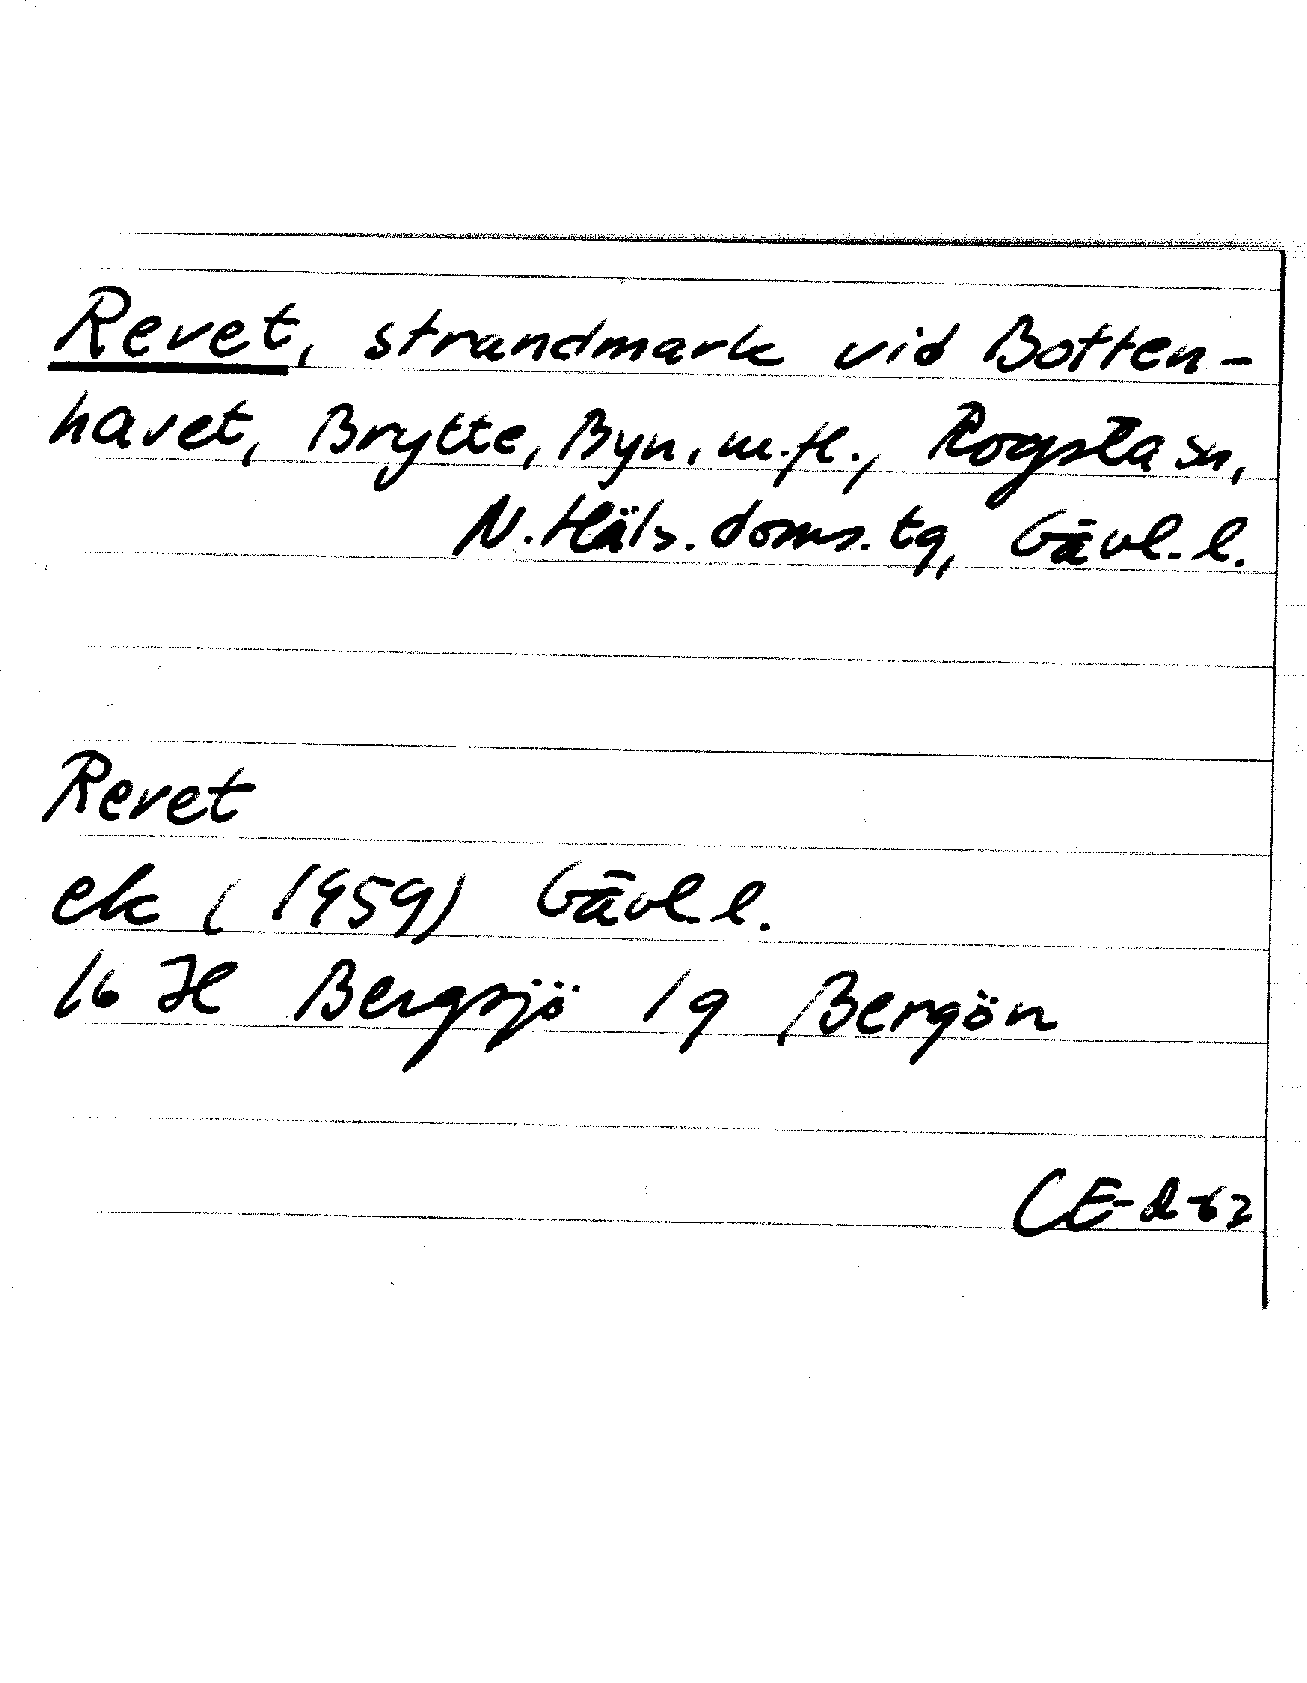 Revet, strandmark vid Botten-
havet, Brytte, Byn, m.fl., Rogsta sn,
N. Häls. doms. tg, Gävl. l.
Revet
ek (1959) Gävl. l.
16 H Bergsjö 1g Bergön
CE-d-62